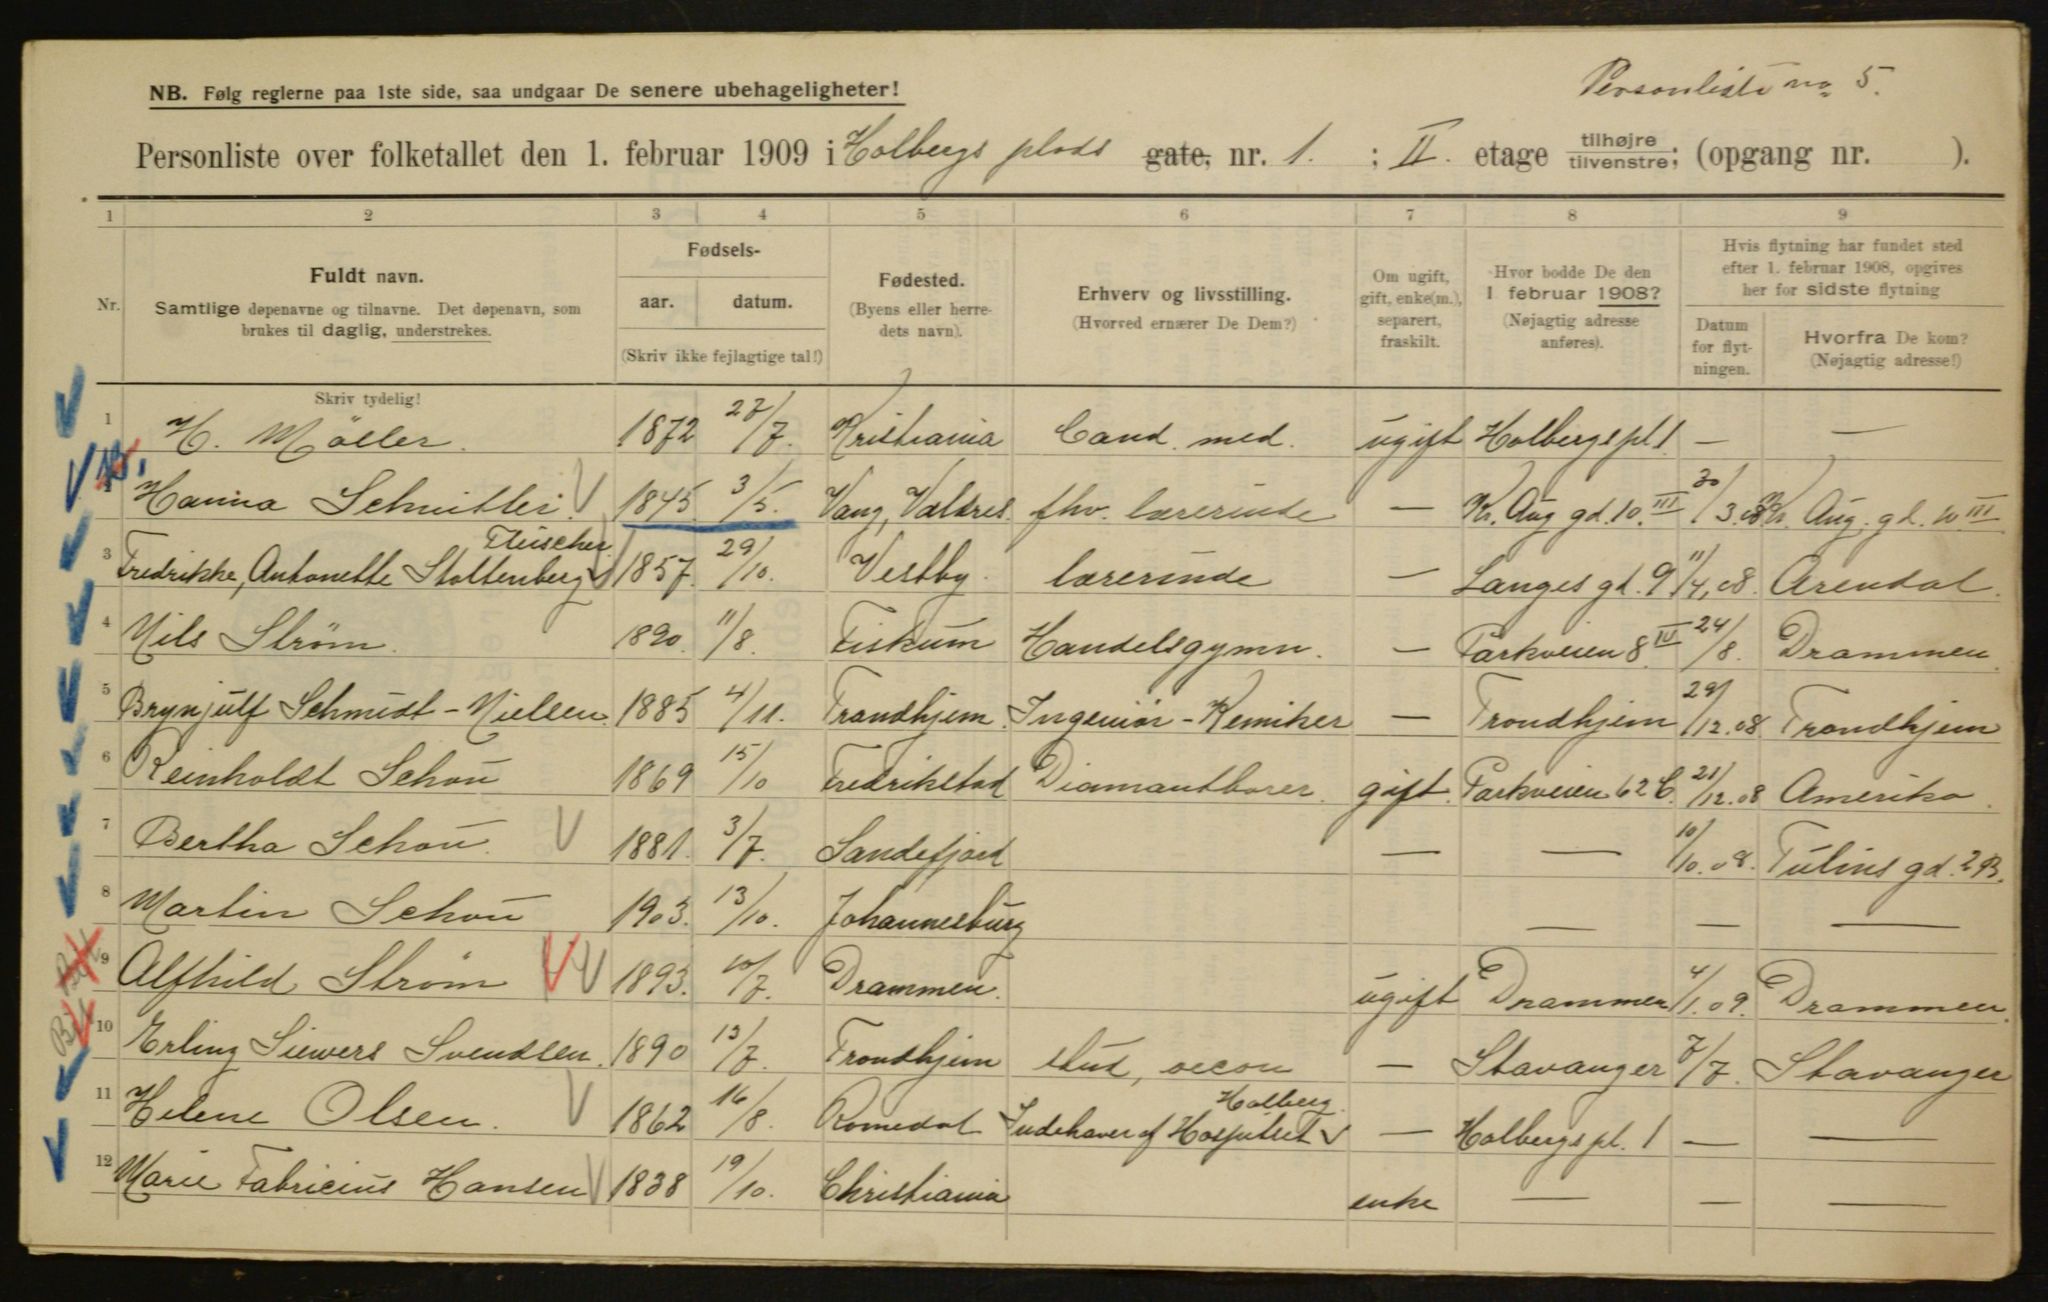 Personliste no 5.
NB. Følg reglerne paa 1ste side, saa undgaar De senere ubehageligheter!
Personliste over folketallet den 1. februar 1909 i Holbergs plads gate, nr. 1. ; II. etage tilhøjre tilvenstre; (opgang nr. ).
1 2 3 4 5 6 7 8 9
Nr.
Fuldt navn.
Samtlige døpenavne og tilnavne. Det døpenavn, som
brukes til daglig, understrekes.
Skriv tydelig!
Fødsels-
aar. datum.
(Skriv ikke fejlagtige tal!)
Fødested.
(Byens eller herre-
dets navn).
Erhverv og livsstilling.
(Hvorved ernærer De Dem?)
Om ugift,
gift, enke(m.),
separert,
fraskilt.
Hvor bodde De den
1 februar 1908?
(Nøjagtig adresse
anføres).
Hvis flytning har fundet sted
efter 1. februar 1908, opgives
her for sidste flytning
Datum
for flyt-
ningen.
Hvorfra De kom?
(Nøjagtig adresse!)
1 H. Möller. 1872 27/7. Kristiania Cand. med. ugift Holbergs pl 1. — —
2 Hanna Schnitler. 1845 3/5. Vang, Valdres. fhv. lærerinde — Kr. Aug gd. 10. III 30/3.08 Kr. Aug. gd. 10 III
Fleischer
3 Fredrikke, Antonette Stoltenberg 1857. 29/10. Vestby. lærerinde — Langes gd. 9 11/4.08. Arendal.
4 Nils Strøm. 1890. 11/8. Fiskum Handelsgymn. — Parkveien 8 IV 24/8. Drammen.
5 Brynjulf Schmidt-Nielsen. 1885 4/11. Trondhjem. Ingeniør-Kemiker — Trondhjem 29/12.08. Trondhjem
6 Reinholdt Schou 1869 15/10 Fredrikstad Diamantborer. gift. Parkveien 62 C. 21/12.08 Amerika.
7 Bertha Schou. 1881. 3/7. Sandefjord — — 10/10.08. Tulins gd. 2 B.
8 Martin Schou 1903. 13/10. Johannesburg — — —
9 Alfhild Strøm 1893. 10/7. Drammen. ugift Drammen 4/1.09. Drammen.
10 Erling Siewers Svendsen. 1890 13/7. Trondhjem stud, oecon — Stavanger 7/7. Stavanger
Holberg
11 Helene Olsen. 1862 16/8. Romedal Indehaver af Hospitset — Holbergs pl. 1 — —
12 Marie Fabricius Hansen 1838 19/10. Christiania enke — — —